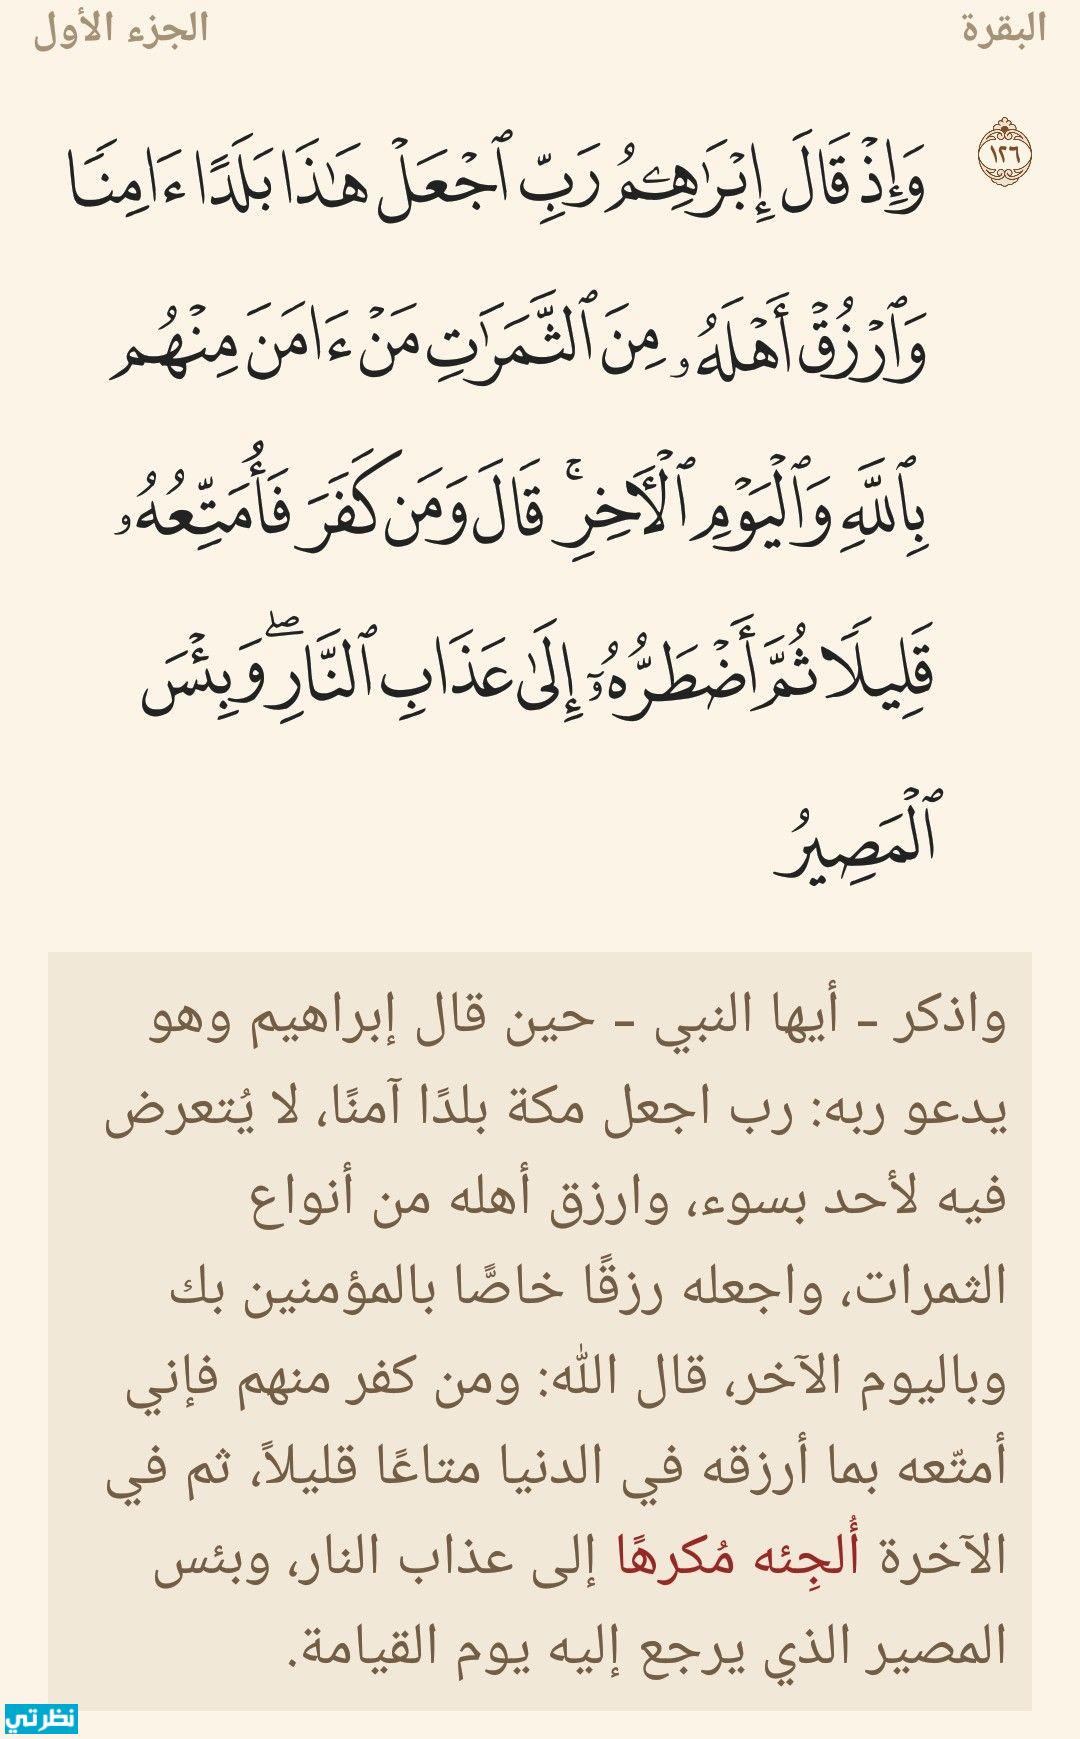 البقرة
الجزء الأول
١٢٦
وَإِذۡ قَالَ إِبۡرَٰهِـۧمُ رَبِّ ٱجۡعَلۡ هَٰذَا بَلَدًا ءَامِنٗا
وَٱرۡزُقۡ أَهۡلَهُۥ مِنَ ٱلثَّمَرَٰتِ مَنۡ ءَامَنَ مِنۡهُم
بِٱللَّهِ وَٱلۡيَوۡمِ ٱلۡأٓخِرِۚ قَالَ وَمَن كَفَرَ فَأُمَتِّعُهُۥ
قَلِيلٗا ثُمَّ أَضۡطَرُّهُۥٓ إِلَىٰ عَذَابِ ٱلنَّارِۖ وَبِئۡسَ
ٱلۡمَصِيرُ
واذكر - أيها النبي - حين قال إبراهيم وهو
يدعو ربه: رب اجعل مكة بلدًا آمنًا، لا يُتعرض
فيه لأحد بسوء، وارزق أهله من أنواع
الثمرات، واجعله رزقًا خاصًّا بالمؤمنين بك
وباليوم الآخر، قال الله: ومن كفر منهم فإني
أمتّعه بما أرزقه في الدنيا متاعًا قليلاً، ثم في
الآخرة أُلجِئه مُكرهًا إلى عذاب النار، وبئس
المصير الذي يرجع إليه يوم القيامة.
نظرتي